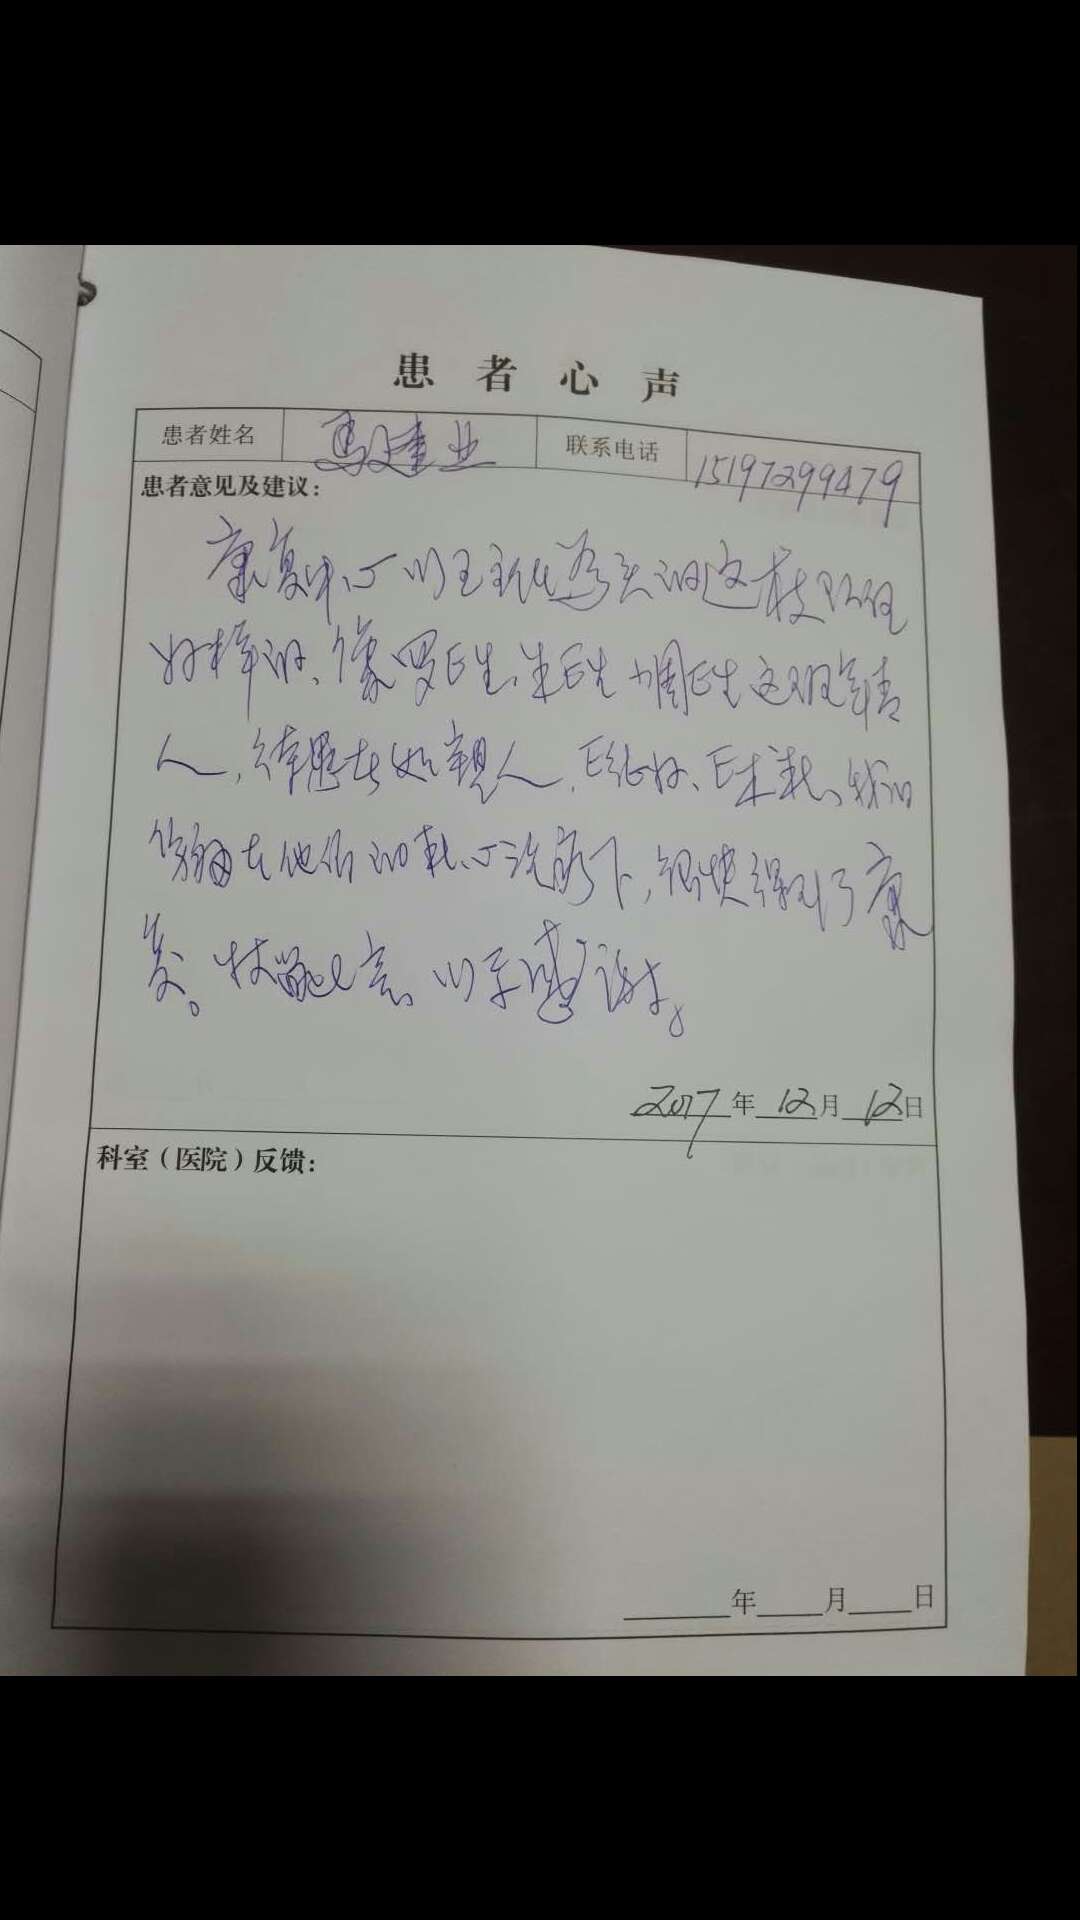 患者心声
患者姓名 马建业 联系电话 15197299479
患者意见及建议：
康复中心以王主任为头的这枝队伍
好样的、像罗医生、朱医生、周医生这班年青
人，待患者如亲人，医德好、医术高、我的
病在他们的精心治疗下，很快得到了康
复。特此言、以示感谢。
2017年12月12日
科室（医院）反馈：
年 月 日